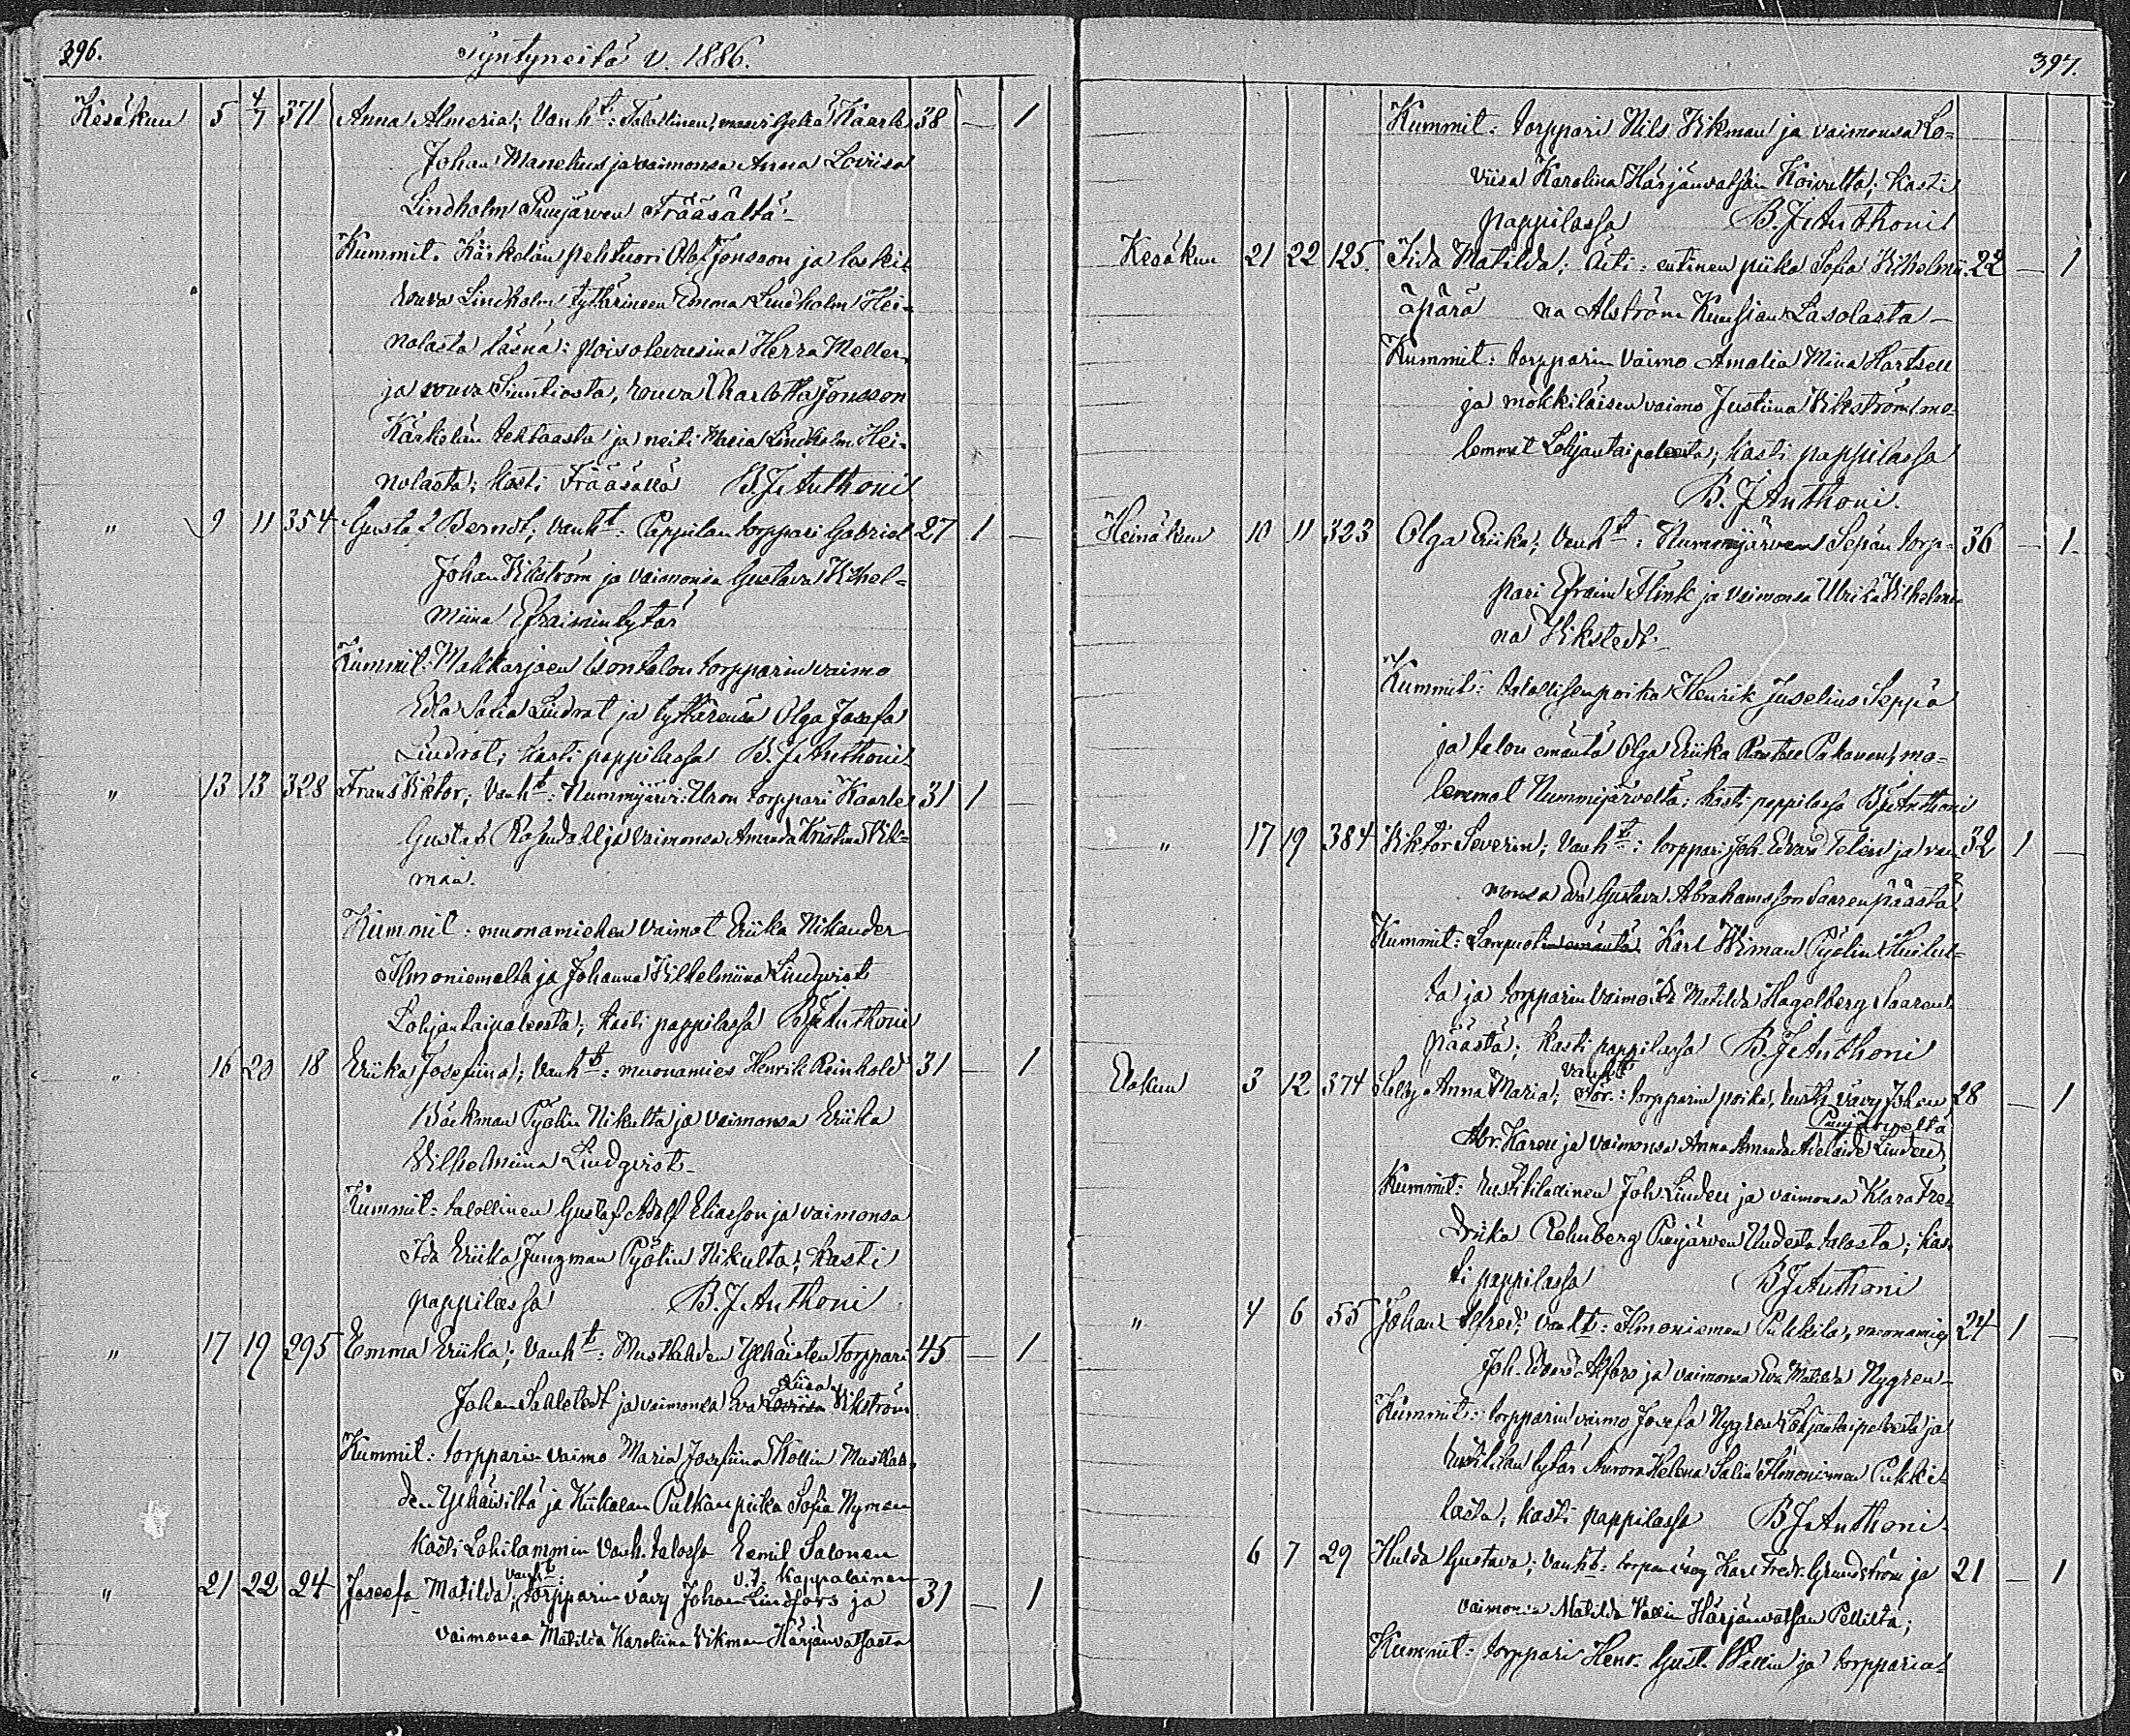 396.
Syntyneitä v. 1886.
Kesäkuu 5 4/7 371 Anna Almeria; Vanht: Talollinen, maanviljeliä Kaarle 38 — 1
Johan Manelius ja vaimonsa Anna Loviisa
Lindholm Puujärven Frääsältä —
Kummit: Kärkelän pehtuori Olof Jonsson ja leski
rouva Lindholm tyttärineen Emma Lindholm Hei-
nolasta läsnä: poisolevaisina Herra Meller
ja rouva Siuntiosta, rouva Charlotta Jonsson
Kärkelän tehtaasta ja neiti Maria Lindholm Hei-
nolasta; kasti Frääsällä B. J. Anthoni
" 9 11 354 Gustaf Berndt; vanht: Pappilan torppari Gabriel 27 1 —
Johan Vikström ja vaimonsa Gustava Vilhel-
miina Efraimintytär
Kummit: Makkarjoen Isontalon torpparin vaimo
Edla Sofia Lindrot ja tyttärensä Olga Josefa
Lindrot; kasti pappilassa B. J. Anthoni
" 13 13 328 Frans Viktor; Vanht: Nummijärvi Uron torppari Kaarle 31 1 —
Gustaf Rosendahl ja vaimonsa Amanda Kristina Vik-
man.
Kummit: muonamiehen vaimot Eriika Nikander
Ilmoniemeltä ja Johanna Vilhelmiina Lindqvist
Lohjantaipaleesta; kasti pappilassa B J Anthoni
" 16 20 18 Eriika Josefiina; Vanht: muonamies Henrik Reinhold 31 — 1
Bäckman Pyölin Nikulta ja vaimonsa Eriika
Vilhelmiina Lindqvist —
Kummit: talollinen Gustaf Adolf Eliasson ja vaimonsa
Ida Eriika Jungman Pyölin Nikulta; kasti
pappilassa B. J. Anthoni
" 17 19 295 Emma Eriika; Vanht: Mustlahden Yhäisten torppari 45 — 1
Liisa
Johan Sahlstedt ja vaimonsa Eva Loviisa Vikström
Kummit: torpparin vaimo Maria Josefiina Kollin Mustlah-
den Yhäisiltä ja Kiikalan Pulkan piika Sofia Nyman
kasti Lohilammin Vanh. talossa Eemil Salonen
v. t. kappalainen
vanht:
" 21 22 24 Josefa Matilda; torpparin vävy Johan Lindfors ja 31 — 1
vaimonsa Matilda Karoliina Vikman Härjänvatsasta
397.
Kummit: torppari Nils Vikman ja vaimonsa Lo-
viisa Karolina Härjänvatsan Koivulta; kasti
pappilassa B. J. Anthoni
Kesäkuu 21 22 125. Iida Matilda; äiti: entinen piika Sofia Vilhelmii- 22 — 1
äpärä na Alström Kuusian Lasolasta —
Kummit: torpparin vaimo Amalia Miina Hartzell
ja mökkiläisen vaimo Justiina Vikström mo-
lemmat Lohjantaipaleesta; kasti pappilassa
B. J Anthoni.
Heinäkuu 10 11 323 Olga Eriika; Vanht: Nummijärven Sepän torp- 36 — 1
pari Efraim Flink ja vaimonsa Ulrika Vilhelmi-
na Vikstedt.
Kummit: talollisenpoika Henrik Juselius Seppä
ja talon emäntä Olga Eriika mo-
lemmat Nummijärveltä; kasti pappilassa B J Anthoni
" 17 19 384 Viktor Severin; Vanht: torppari Joh. Edvard Telen ja vai- 32 1 —
monsa Eva Gustava Abrahamsson Saarenpäästä
Kummit: Karl Viman Pyölin
ta ja torpparin vaimo Ida Matilda Hagelberg Saaren-
päästä; kasti pappilassa B. J Anthoni
vanht
Elokuu 3 12 374 Selly Anna Maria; För.: torpparin poika, rusth. vävy Johan 28 — 1
Puujärveltä
Abr. Karen ja vaimonsa Anna Amanda Adelaide Linden
Kummit: rustitilallinen Joh. Linden ja vaimonsa Klara Fre-
drika Rehnberg Puujärven Uudesta talosta; kas-
ti pappilassa B J Anthoni
" 4 6 55 Johan Alfred; vanht: Ilmoniemen Pukkila, muonamies 24 1 —
Joh. Edvard Alfors ja vaimonsa Eva Matilda Nygren —
Kummit: torpparin vaimo Josefa Nygren Lohjantaipaleesta ja
rustitilan tytär Aurora Helena Salin Ilmoniemen Pukki-
lasta; kasti pappilassa B J Anthoni
6 7 29 Hulda Gustava; vanht: torpan vävy Karl Fredr. Grundström ja 21 — 1
vaimonsa Matilda Vallin Härjänvatsan Pelliltä;
Kummit: torppari Henr. Gust. Wallin ja torpparin